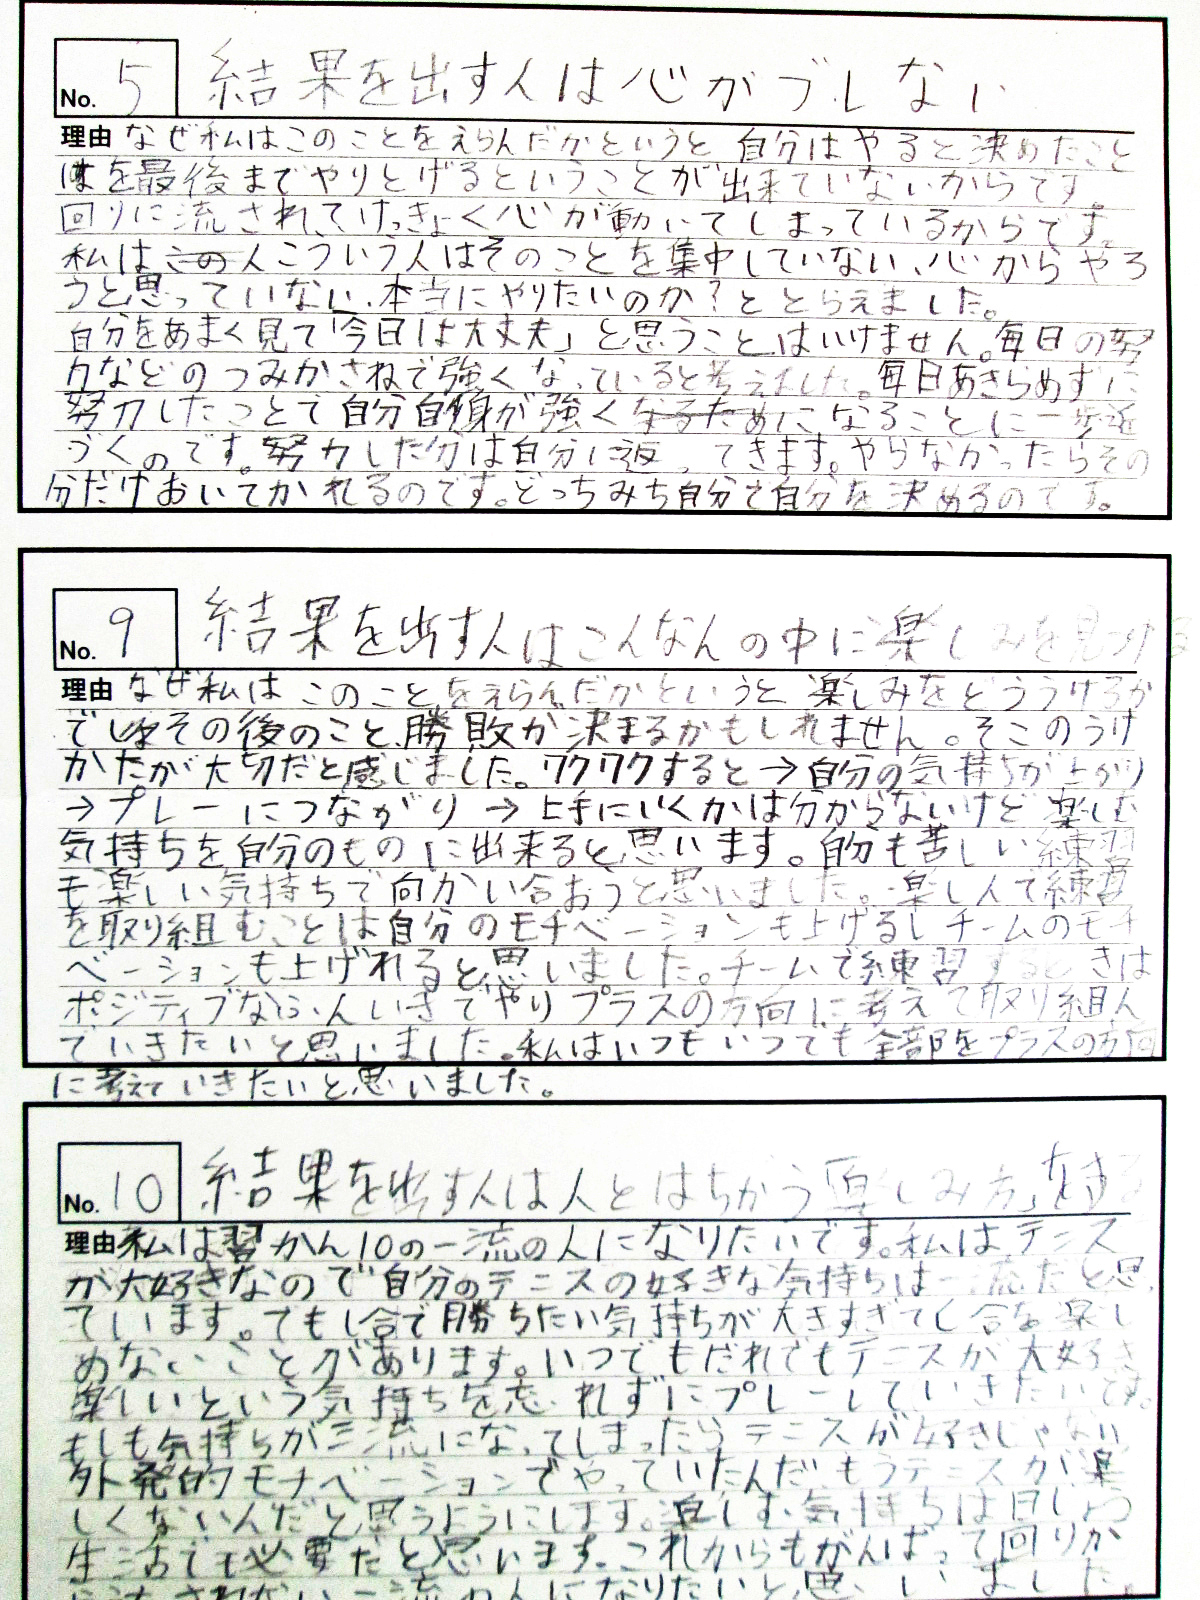 No. 5 結果を出す人は心がブレない
理由 なぜ私はこのことをえらんだかというと 自分はやると決めたこと
はを最後までやりとげるということが出来ていないからです。
回りに流されていけっきょく心が動いてしまっているからです。
私はこの人こういう人はそのことを集中していない、心からやろ
うと思っていない、本当にやりたいのか?ととらえました。
自分をあまく見て「今日は大丈夫」と思うことはいけません。毎日の努
力などのつみかさねで強くなっていると考えました。毎日あきらめずに
努力したことで自分自身が強くなるためになることに一歩近
づくのです。努力した分は自分に返ってきます。やらなかったらその
分だけおいてかれるのです。どっちみち自分で自分を決めるのです。
No. 9 結果を出す人はこんなんの中に楽しみを見つける
理由 なぜ私はこのことをえらんだかというと 楽しみをどううけるか
でしその後のこと、勝敗が決まるかもしれません。そこのうけ
かたが大切だと感じました。ワクワクすると→自分の気持ちが上がり
→プレーにつながり→上手にいくかは分からないけど楽しむ
気持ちを自分のものに出来ると思います。自分も苦しい練習
も楽しい気持ちで向かい合おうと思いました。楽しんで練習
を取り組むことは自分のモチベーションも上げるしチームのモチ
ベーションも上げれると思いました。チームで練習するときは
ポジティブなふんいきでやりプラスの方向に考えて取り組ん
でいきたいと思いました。私はいつもいつでも全部をプラスの方向
に考えていきたいと思いました。
No. 10 結果を出す人は人とはちがう「楽しみ方」をする
理由 私は習かん10の一流の人になりたいです。私はテニス
が大好きなので自分のテニスの好きな気持ちは一流だと思っ
ています。でもし合で勝ちたい気持ちが大きすぎてし合を楽し
めないことがあります。いつでもだれでもテニスが大好き
楽しいという気持ちを忘れずにプレーしていきたいです。
もしも気持ちが三流になってしまったらテニスが好きじゃない、
外発的モチベーションでやっていたんだ もうテニスが楽
しくないんだと思うようにします。楽しむ気持ちは日じょう
生活でも必要だと思います。これからもがんばって回りか
一流の人になりたいと思いました。